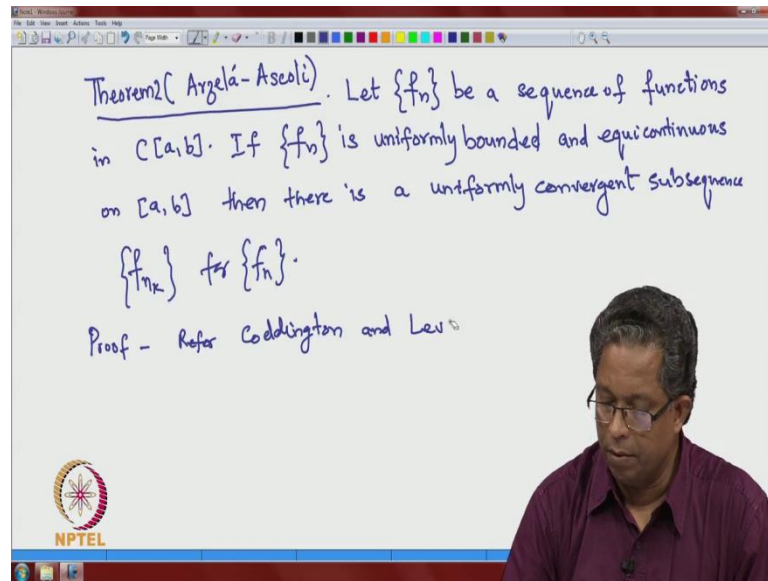 Note1 - Windows Journal
File Edit View Insert Actions Tools Help
Page Width
Theorem2 ( Arzelá-Ascoli) . Let {fn} be a sequence of functions
in C[a,b]. If {fn} is uniformly bounded and equicontinuous
on [a,b] then there is a uniformly convergent subsequence
{fnk} for {fn}.
Proof - Refer Coddington and Lev
NPTEL